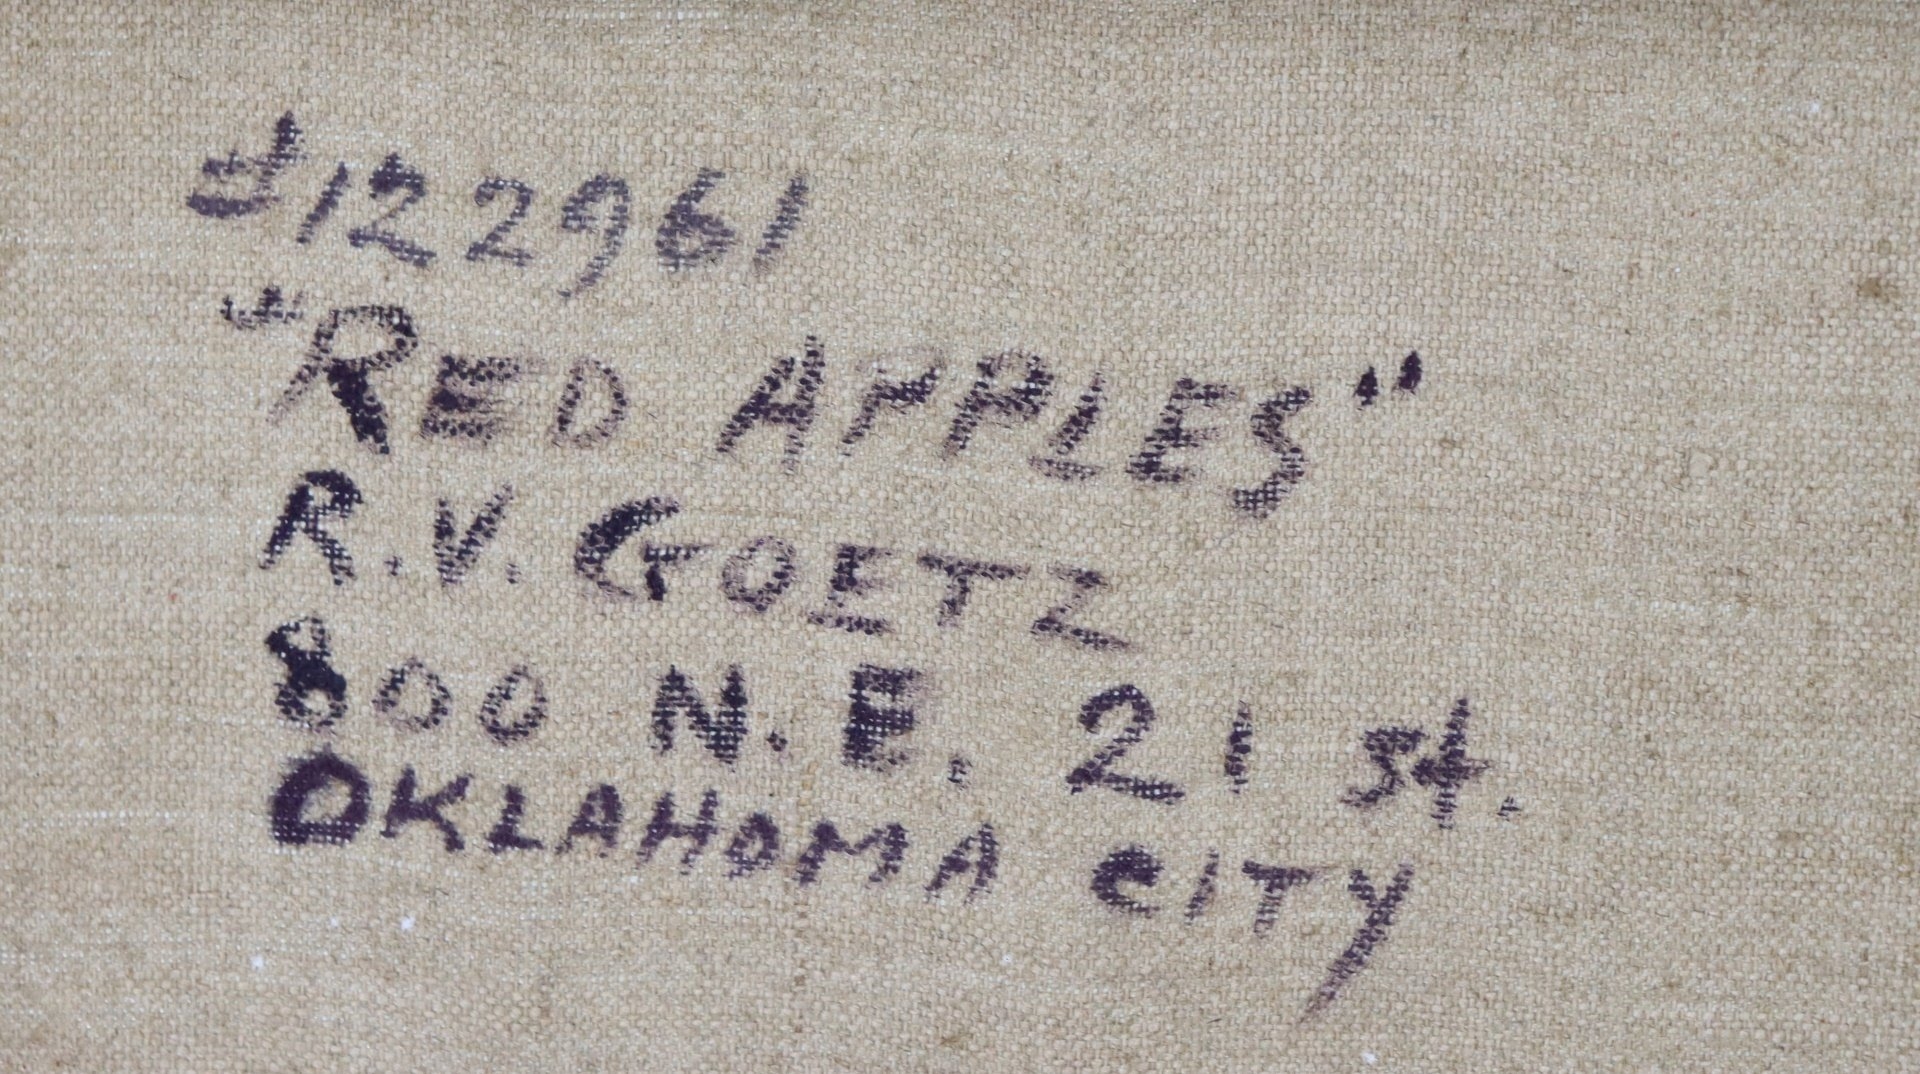 #122961
"RED APPLES"
R.V. GOETZ
800 N.E. 21 st.
OKLAHOMA CITY